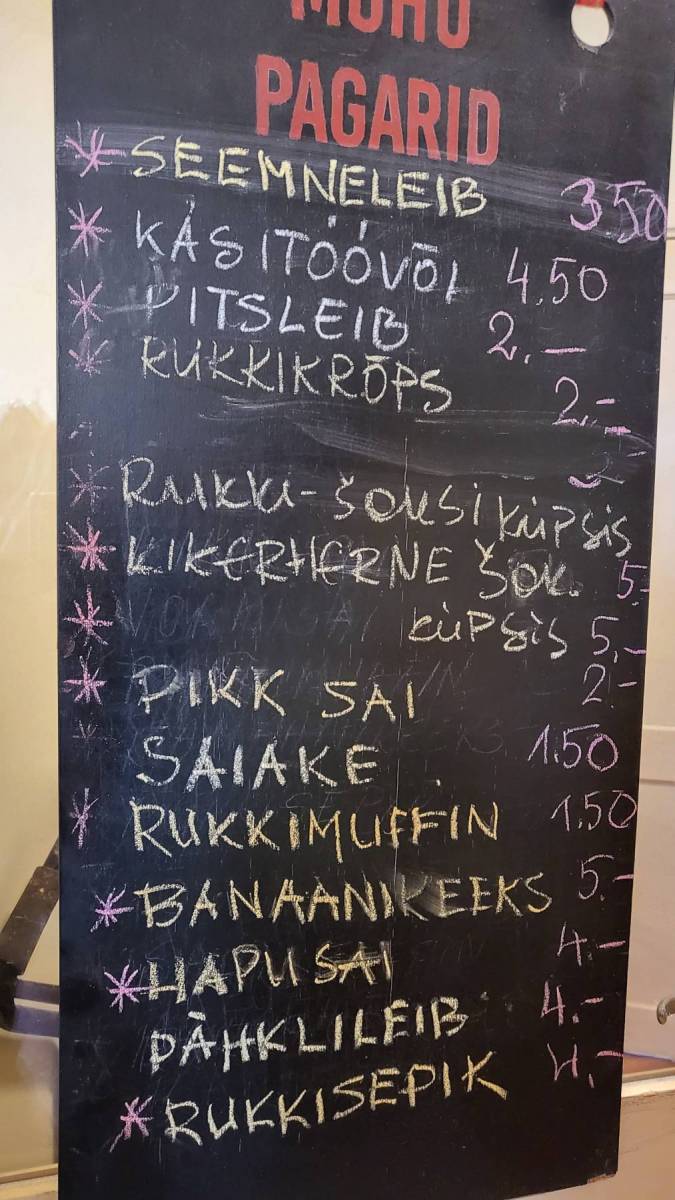 MUHU
PAGARID
* SEEMNELEIB 350
* KÄSITÖÖVÕI 4.50
* PITSLEIB 2.-
* RUKKIKRÕPS 2.-
* RUKKI-ŠOKSIKÜPSIS
* KIKERHERNE ŠOK. 5.-
* KÜPSIS 5.-
* PIKK SAI 2.-
SAIAKE 1.50
* RUKKIMUFFIN 1.50
* BANAANIKEEKS 5.-
* HAPUSAI 4.-
PÄHKLILEIB 4.-
* RUKKISEPIK 4.-